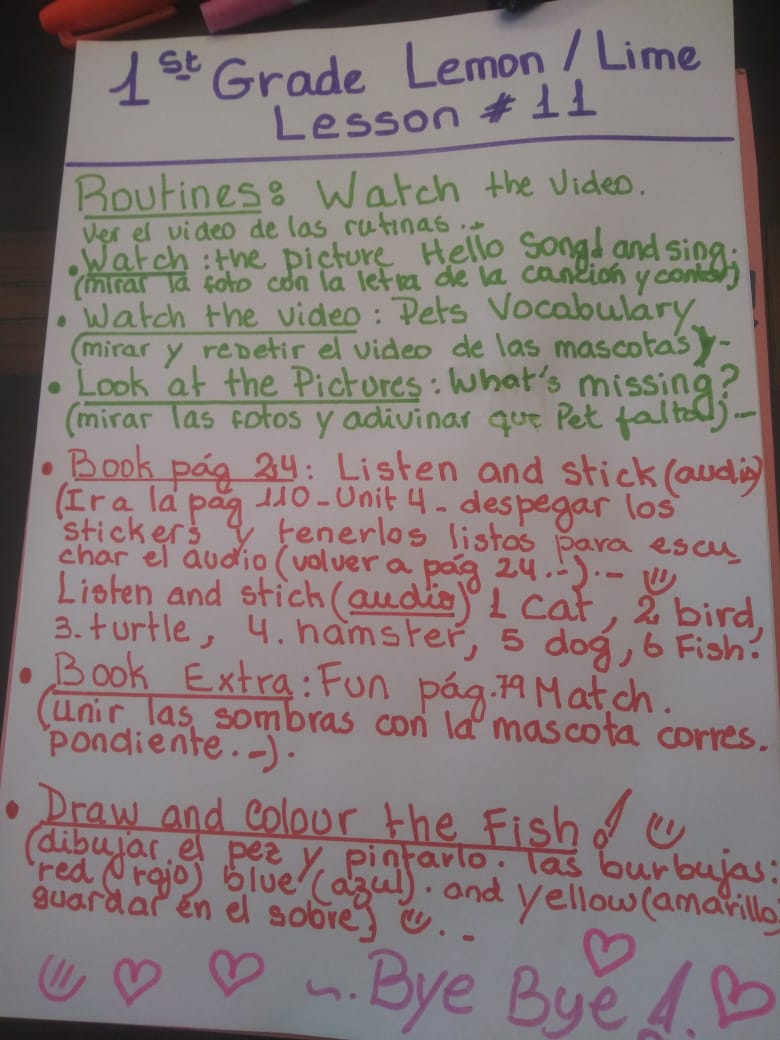 1st Grade Lemon / Lime
Lesson # 11
Routines: Watch the Video.
Ver el video de las rutinas.-
• Watch : the picture Hello Song! and sing.
(mirar la foto con la letra de la canción y cantar)
• Watch the video : Pets Vocabulary
(mirar y repetir el video de las mascotas).-
• Look at the Pictures : What's missing?
(mirar las fotos y adivinar que Pet falta).-
• Book pág 24 : Listen and stick (audio)
(Ir a la pág 110 - Unit 4 - despegar los
stickers y tenerlos listos para escu_
char el audio (volver a pág 24.-).-
Listen and stick (audio) 1 Cat, 2 bird,
3. turtle, 4. hamster, 5 dog, 6 Fish.
• Book Extra : Fun pág. 79 Match.
(unir las sombras con la mascota corres.
pondiente.-).
• Draw and colour the Fish!
(dibujar el pez y pintarlo. las burbujas:
red (rojo) blue (azul). and yellow (amarillo)
guardar en el sobre) .-
~. Bye Bye!.